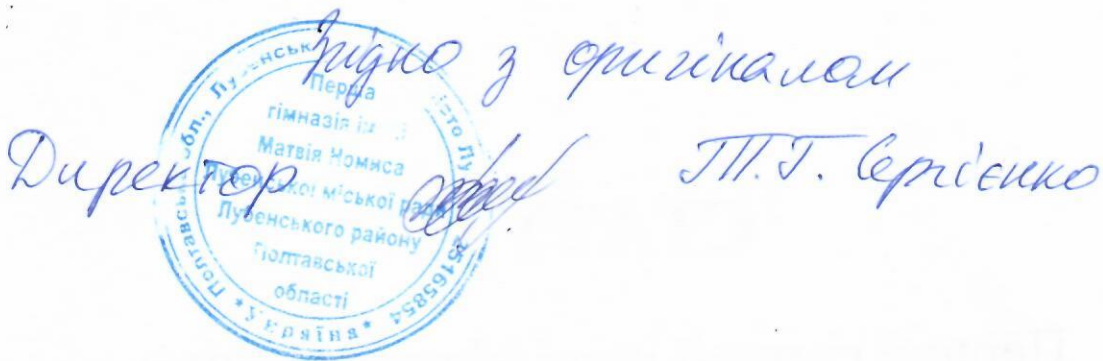 Згідно з оригіналом
Директор Т.Г. Сергієнко
Перша
гімназія імені
Матвія Номиса
Лубенської міської ради
Лубенського району
Полтавської
області
* Україна * Полтавська обл., Лубенський місто Лу 25165854